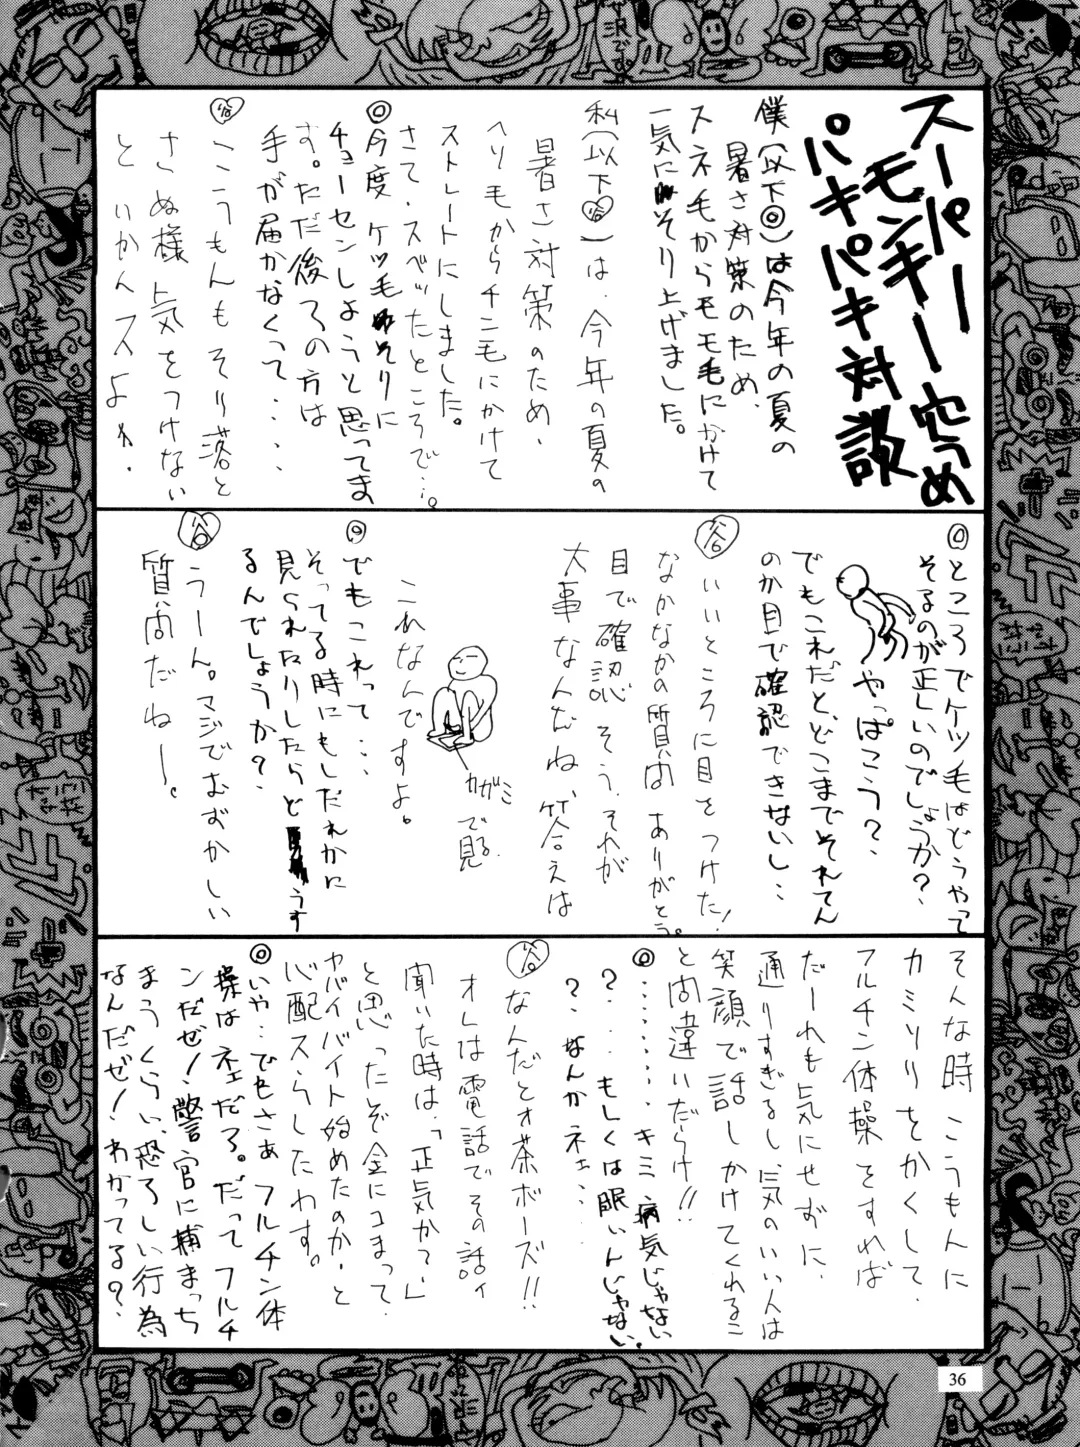 スーパーモンキー空つめ
パキパキ対談
僕(以下◎)は今年の夏の
暑さ対策のため、
スネ毛からモモ毛にかけて
一気にそり上げました。
私(以下谷)は、今年の夏の
暑さ対策のため、
ヘソ毛からチン毛にかけて
ストレートにしました。
さて、スベッたところで…。
◎今度ケツ毛そりに
チョーセンしようと思ってま
す。ただ後ろの方は
手が届かなくって....
谷「こうもんもそり落と
さぬ様、気をつけない
と いかんスよ
◎ところでケツ毛はどうやって
そるのが正しいのでしょうか?
やっぱこう?、
でもこれだと、どこまでそれてん
のか目で確認できないし、、
谷 いいところに目をつけた!
なかなかの質問ありがとう。
目で確認 そう、それが
大事なんだね、答えは
カガミで見る
これなんですよ。
◎でもこれって…
そってる時にもしだれかに
見られたりしたらどうす
るんでしょうか?
谷 うーん。マジでむずかしい
質問だねー。
そんな時こうもんに
カミソリをかくして、
フルチン体操をすれば
だーれも気にせずに、
通りすぎるし、気のいい人は
笑顔で話しかけてくれるこ
と間違いだらけ!!
◎.......キミ病気じゃない
?...もしくは眠いんじゃない
?、なんかネェ....
谷 なんだとォ茶ボーズ!!
オレは電話でその話ィ
聞いた時は、「正気か?」
と思ったぞ金にコまって、
ヤバイバイト始めたのか、と
心配スらしたわす。
◎いや…でもさぁフルチン体
操はネェだろ。だってフルチ
ンだぜ!警官に捕まっち
まうくらい、恐ろしい行為
なんだぜ!わかってる?、
36